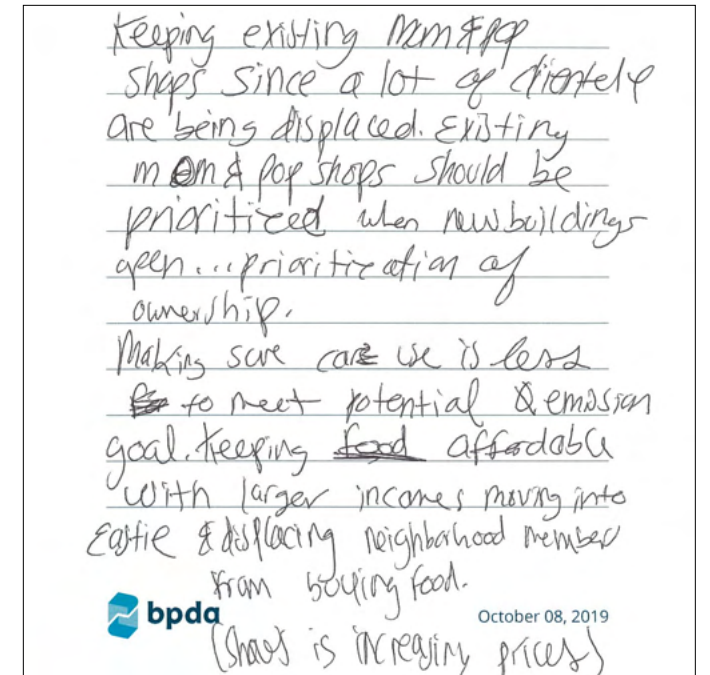 Keeping existing mom & pop
shops since a lot of clientele
are being displaced. Existing
mom & pop shops should be
prioritized when new buildings
open...prioritization of
ownership.
Making sure care use is less
to meet potential 0 emission
goal. Keeping food affordable
with larger incomes moving into
Eastie & displacing neighborhood member
from buying food.
bpda
October 08, 2019
(Shaws is increasing prices)